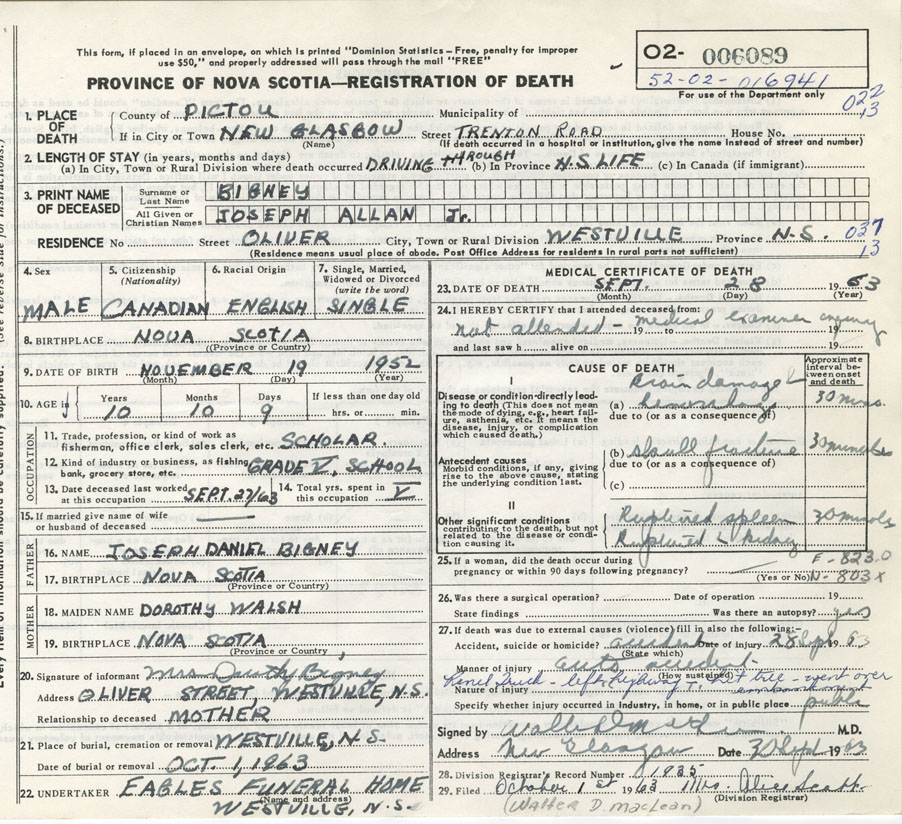 This form, if placed in an envelope, on which is printed "Dominion Statistics – Free, penalty for improper
use $50," and properly addressed will pass through the mail "FREE"
O2- 006089
52-02-016941
For use of the Department only
PROVINCE OF NOVA SCOTIA—REGISTRATION OF DEATH
022
13
1. PLACE OF DEATH County of PICTOU Municipality of
If in City or Town NEW GLASGOW Street TRENTON ROAD House No.
(Name) (If death occurred in a hospital or institution, give the name instead of street and number)
2. LENGTH OF STAY (in years, months and days)
(a) In City, Town or Rural Division where death occurred DRIVING THROUGH (b) In Province N.S. LIFE (c) In Canada (if immigrant)
3. PRINT NAME OF DECEASED Surname or Last Name BIGNEY
All Given or Christian Names JOSEPH ALLAN Jr.
RESIDENCE No Street OLIVER City, Town or Rural Division WESTVILLE Province N.S. 037
13
(Residence means usual place of abode. Post Office Address for residents in rural parts not sufficient)
4. Sex 5. Citizenship (Nationality) 6. Racial Origin 7. Single, Married, Widowed or Divorced (write the word)
MALE CANADIAN ENGLISH SINGLE
8. BIRTHPLACE NOVA SCOTIA
(Province or Country)
9. DATE OF BIRTH NOVEMBER 19 1952
(Month) (Day) (Year)
10. AGE Years Months Days If less than one day old
10 10 9 hrs. or min.
OCCUPATION
11. Trade, profession or kind of work as fisherman, office clerk, sales clerk, etc. SCHOLAR.
12. Kind of industry or business, as fishing, bank, grocery store, etc. GRADE V, SCHOOL
13. Date deceased last worked at this occupation SEPT. 27/63 14. Total yrs. spent in this occupation V
15. If married give name of wife or husband of deceased
FATHER
16. NAME JOSEPH DANIEL BIGNEY
17. BIRTHPLACE NOVA SCOTIA
(Province or Country)
MOTHER
18. MAIDEN NAME DOROTHY WALSH
19. BIRTHPLACE NOVA SCOTIA
(Province or Country)
20. Signature of informant Mrs Dorothy Bigney
Address OLIVER STREET, WESTVILLE, N.S.
Relationship to deceased MOTHER
21. Place of burial, cremation or removal WESTVILLE, N.S.
Date of burial or removal OCT. 1, 1963
22. UNDERTAKER EAGLES FUNERAL HOME
(Name and address)
WESTVILLE, N.S.
MEDICAL CERTIFICATE OF DEATH
23. DATE OF DEATH SEPT. 28 1963
(Month) (Day) (Year)
24. I HEREBY CERTIFY that I attended deceased from:
not attended – medical examiner inquiry
19 to 19
and last saw h alive on 19
CAUSE OF DEATH Approximate interval between onset and death
I
Disease or condition directly leading to death (This does not mean the mode of dying, e.g., heart failure, asthenia, etc. It means the disease, injury, or complication which caused death.)
Brain damage &
(a) hemorrhage 30 mins.
due to (or as a consequence of)
Antecedent causes
Morbid conditions, if any, giving rise to the above cause, stating the underlying condition last.
(b) skull fracture 30 minutes
due to (or as a consequence of)
(c)
II
Other significant conditions contributing to the death, but not related to the disease or condition causing it.
Ruptured spleen 30 minutes
Ruptured L kidney
25. If a woman, did the death occur during pregnancy or within 90 days following pregnancy? (Yes or No)
F - 823.0
N - 803 x
26. Was there a surgical operation? Date of operation 19
State findings Was there an autopsy? yes
27. If death was due to external causes (violence) fill in also the following:–
Accident, suicide or homicide? accident Date of injury 28 Sept 63
(State which)
Manner of injury auto accident
(How sustained)
left highway, hit tree - went over
Nature of injury embankment
Specify whether injury occurred in Industry, in home, or in public place public
Signed by M.D.
Address New Glasgow Date 30 Sept 1963
28. Division Registrar's Record Number 01935
29. Filed October 1st 1963 Mrs. Alice Scott
(Division Registrar)
(Walter D. MacLean)